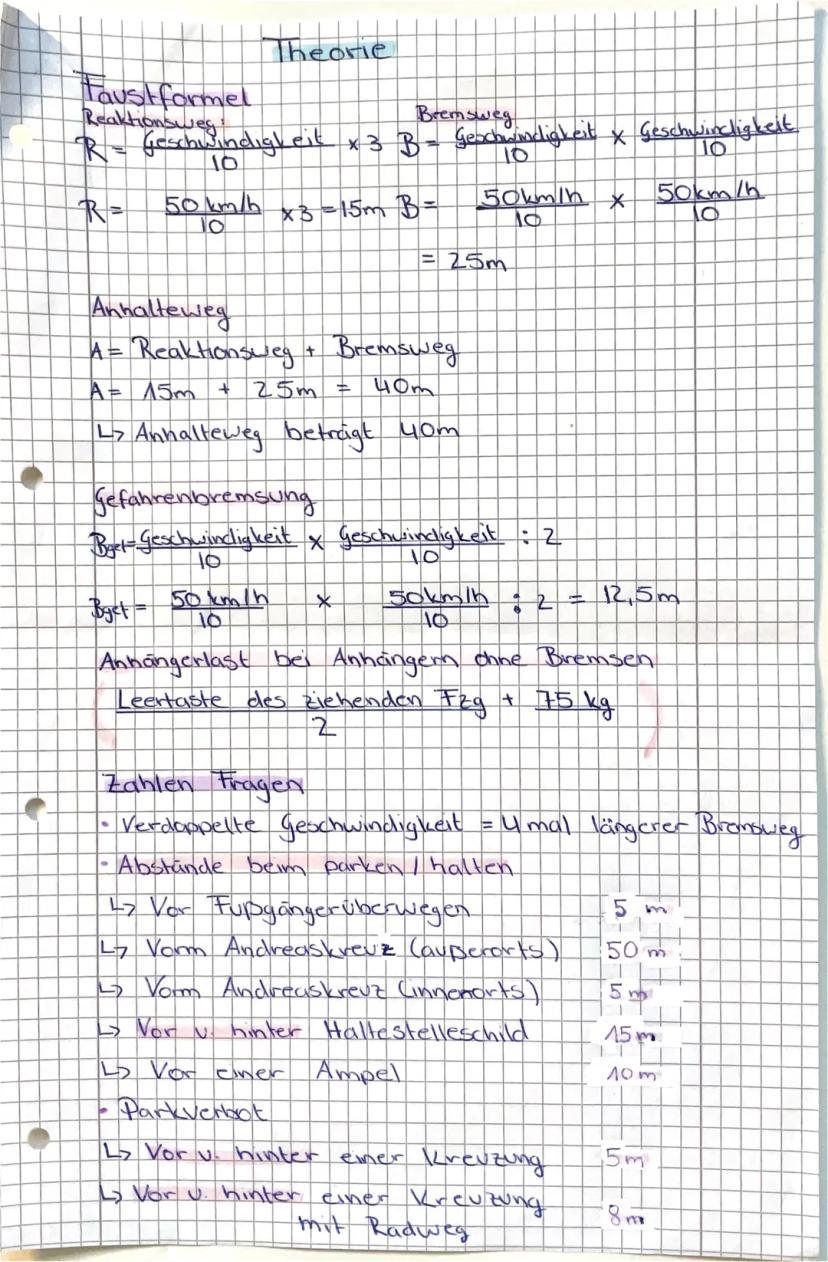 Theorie
Faustformel
Reaktionsweg: Bremsweg
R = Geschwindigkeit/10 x 3 B = Geschwindigkeit/10 x Geschwindigkeit/10
R = 50 km/h/10 x 3 = 15m B = 50km/h/10 x 50km/h/10
= 25m
Anhalteweg
A = Reaktionsweg + Bremsweg
A = 15m + 25m = 40m
↳ Anhalteweg beträgt 40m
Gefahrenbremsung
Bgef = Geschwindigkeit/10 x Geschwindigkeit/10 : 2
Bgef = 50 km/h/10 x 50km/h/10 : 2 = 12,5m
Anhängerlast bei Anhängern ohne Bremsen
Leertaste des ziehenden Fzg + 75 kg
2
Zahlen Fragen
• Verdoppelte Geschwindigkeit = 4 mal längerer Bremsweg
• Abstände beim parken / halten
↳ Vor Fußgängerüberwegen 5 m
↳ Vorm Andreaskreuz (außerorts) 50 m
↳ Vorm Andreaskreuz (innenorts) 5 m
↳ Vor u. hinter Haltestelleschild 15m
↳ Vor einer Ampel 10 m
• Parkverbot
↳ Vor u. hinter einer Kreuzung 5m
↳ Vor u. hinter einer Kreuzung
mit Radweg 8m